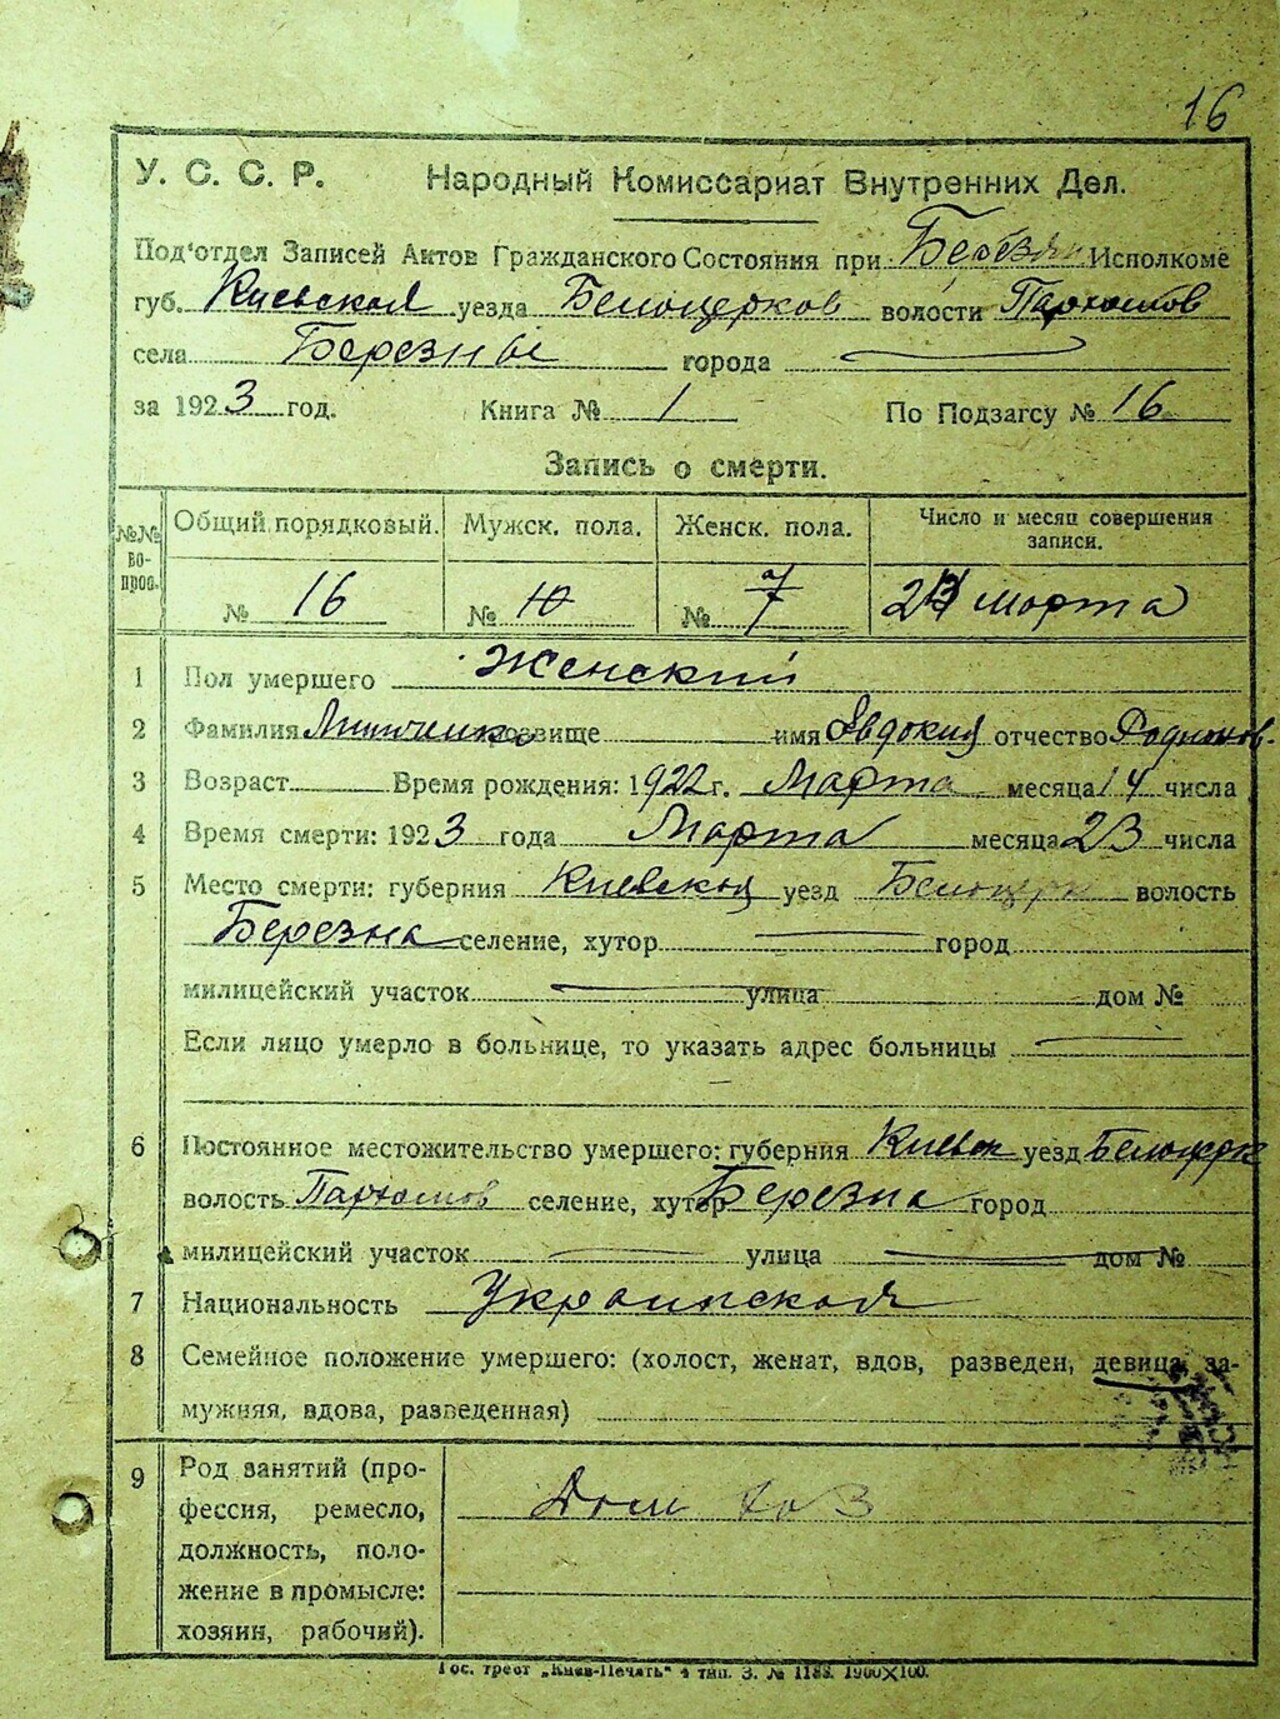 16
У. С. С. Р. Народный Комиссариат Внутренних Дел.
Под'отдел Записей Актов Гражданского Состояния при Исполкоме
губ. Киевская уезда Белоцерков волости Пархомов
села Березны города
за 1923 год. Книга № 1 По Подзагсу № 16
Запись о смерти.
№№ вопрос. Общий порядковый. Мужск. пола. Женск. пола. Число и месяц совершения записи.
№ 16 № 10 № 7 марта
1 Пол умершего Женский
2 Фамилия прозвище имя Евдокия отчество Родионов.
3 Возраст Время рождения: 1922 г. Марта месяца 14 числа
4 Время смерти: 1923 года Марта месяца 23 числа
5 Место смерти: губерния Киевская уезд Белоцерк волость
Березна селение, хутор город
милицейский участок улица дом №
Если лицо умерло в больнице, то указать адрес больницы
6 Постоянное местожительство умершего: губерния Киевск уезд Белоцерк
волость Пархомов селение, хутор Березна город
милицейский участок улица дом №
7 Национальность Украинская
8 Семейное положение умершего: (холост, женат, вдов, разведен, девица, за-
мужняя, вдова, разведенная)
9 Род занятий (про-
фессия, ремесло, Дом хоз
должность, поло-
жение в промысле:
хозяин, рабочий).
Гос. трест „Киев-Печать" 4 тип. З. № 1188. 1000×100.